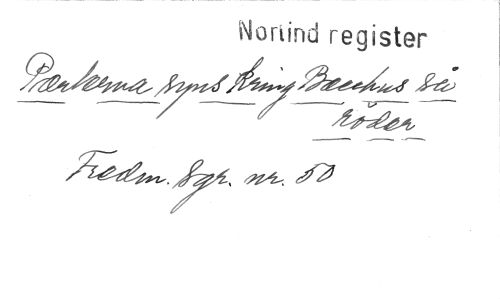 Norlind register
Pärlorna syns kring Bacchus så
röder
Fredm. Sgr. nr. 50